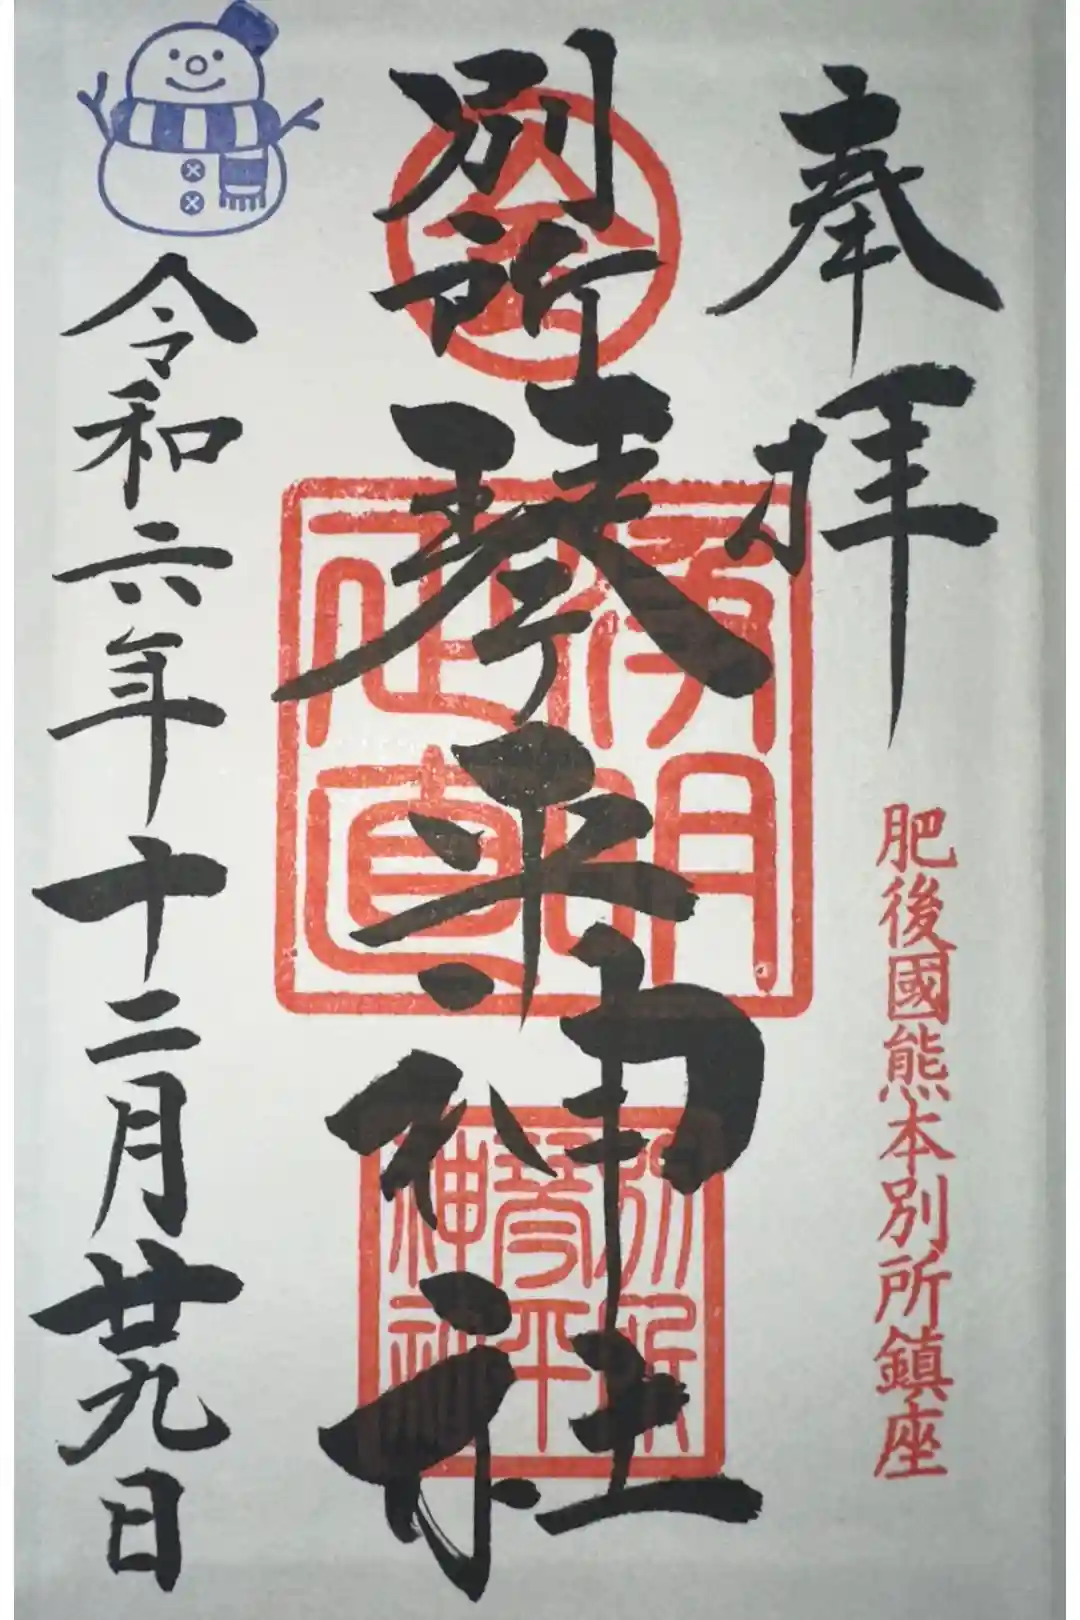 奉拝
肥後國熊本別所鎮座
別所琴平神社
金
清明正直
別所琴平神社
令和六年十二月廿九日